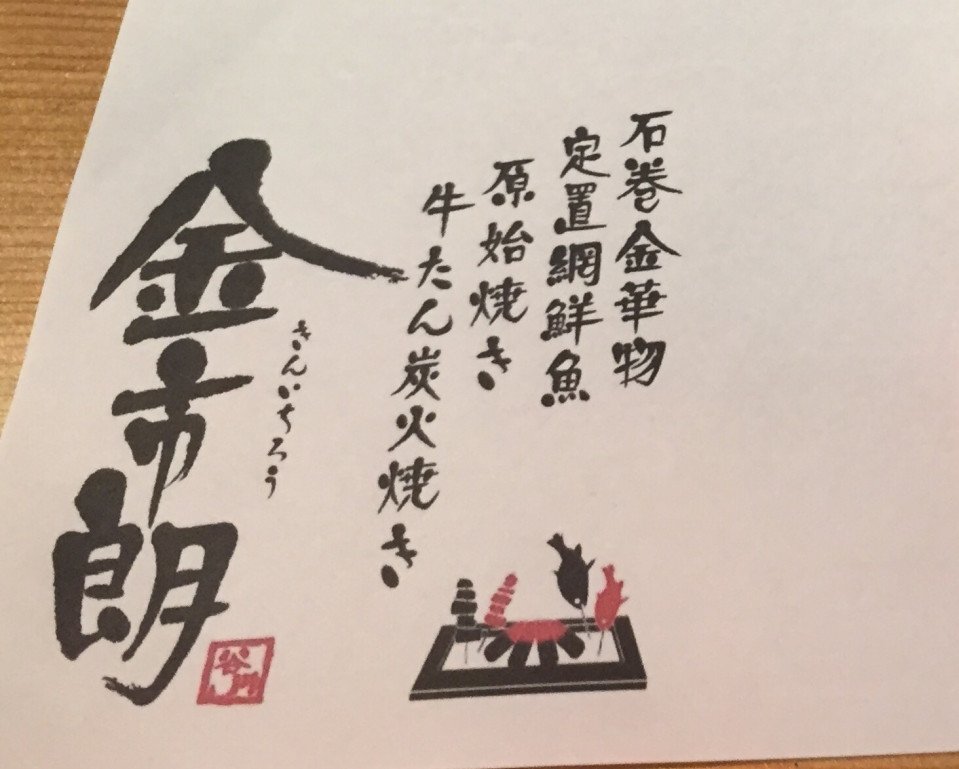 石巻金華物
定置網鮮魚
原始焼き
牛たん炭火焼き
きんいちろう
金市朗
谷川